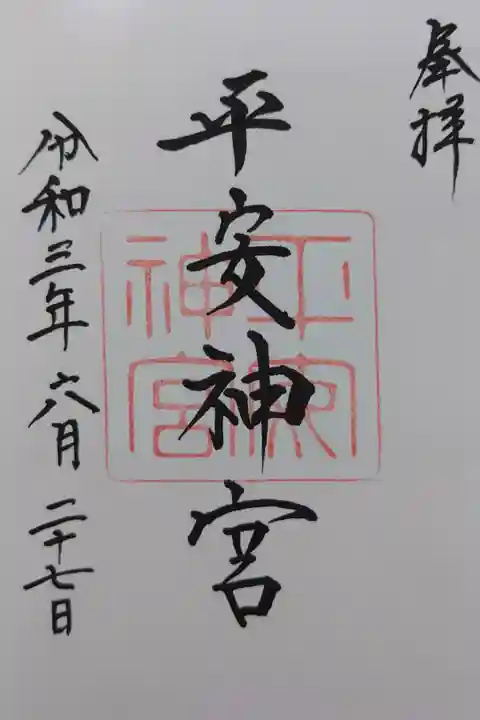 奉拝
平安神宮
平安神宮
令和三年六月二十七日